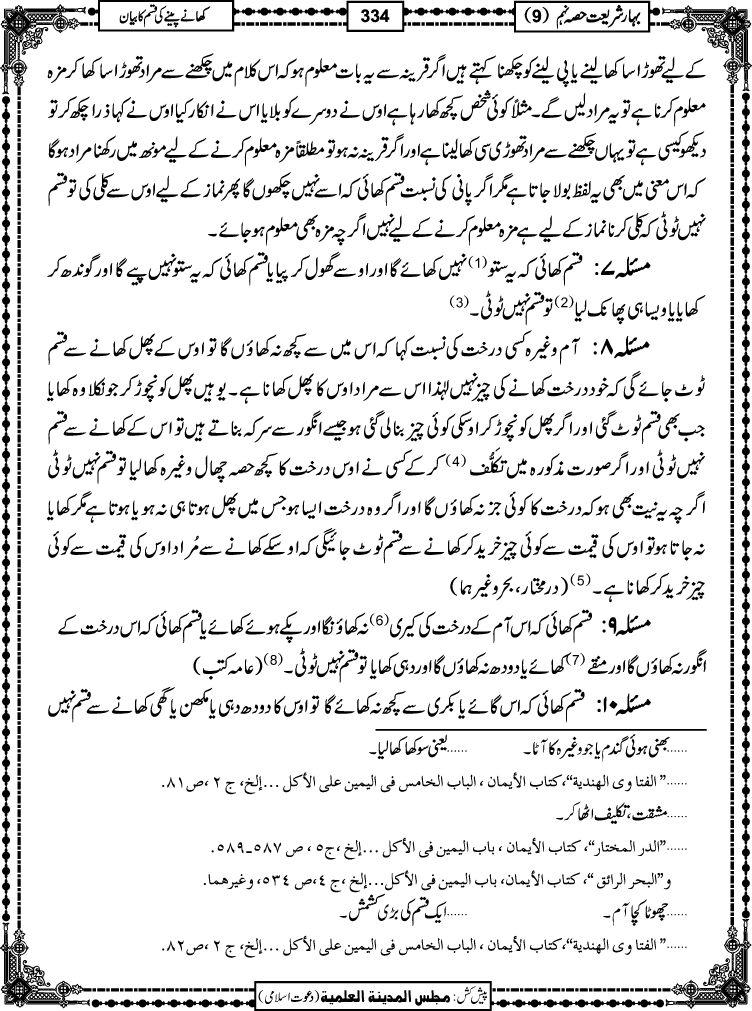 بہارِ شریعت حصہ نہم (9)
334
کھانے پینے کی قسم کا بیان
کے لیے تھوڑا سا کھا لینے یا پی لینے کو چکھنا کہتے ہیں اگر قرینہ سے یہ بات معلوم ہو کہ اس کلام میں چکھنے سے مراد تھوڑا سا کھا کر مزہ
معلوم کرنا ہے تو یہ مراد لیں گے۔ مثلاً کوئی شخص کچھ کھا رہا ہے اوس نے دوسرے کو بلایا اس نے انکار کیا اوس نے کہا ذرا چکھ کر تو
دیکھو کیسی ہے تو یہاں چکھنے سے مراد تھوڑی سی کھا لینا ہے اور اگر قرینہ نہ ہو تو مطلقاً مزہ معلوم کرنے کے لیے مونھ میں رکھنا مراد ہو گا
کہ اس معنی میں بھی یہ لفظ بولا جاتا ہے مگر اگر پانی کی نسبت قسم کھائی کہ اسے نہیں چکھوں گا پھر نماز کے لیے اوس سے کلی کی تو قسم
نہیں ٹوٹی کہ کلی کرنا نماز کے لیے ہے مزہ معلوم کرنے کے لیے نہیں اگرچہ مزہ بھی معلوم ہو جائے۔
مسئلہ ۷: قسم کھائی کہ یہ ستو (1) نہیں کھائے گا اور اوسے گھول کر پیا یا قسم کھائی کہ یہ ستو نہیں پیے گا اور گوندھ کر
کھایا یا ویسا ہی پھانک لیا (2) تو قسم نہیں ٹوٹی۔ (3)
مسئلہ ۸: آم وغیرہ کسی درخت کی نسبت کہا کہ اس میں سے کچھ نہ کھاؤں گا تو اوس کے پھل کھانے سے قسم
ٹوٹ جائے گی کہ خود درخت کھانے کی چیز نہیں لہٰذا اس سے مراد اوس کا پھل کھانا ہے۔ یوہیں پھل کو نچوڑ کر جو نکلا وہ کھایا
جب بھی قسم ٹوٹ گئی اور اگر پھل کو نچوڑ کر اوسکی کوئی چیز بنالی گئی ہو جیسے انگور سے سرکہ بناتے ہیں تو اس کے کھانے سے قسم
نہیں ٹوٹی اور اگر صورت مذکورہ میں تکلُّف (4) کر کے کسی نے اوس درخت کا کچھ حصہ چھال وغیرہ کھا لیا تو قسم نہیں ٹوٹی
اگرچہ یہ نیت بھی ہو کہ درخت کا کوئی جز نہ کھاؤں گا اور اگر وہ درخت ایسا ہو جس میں پھل ہوتا ہی نہ ہو یا ہوتا ہے مگر کھایا
نہ جاتا ہو تو اوس کی قیمت سے کوئی چیز خرید کر کھانے سے قسم ٹوٹ جائیگی کہ اوسکے کھانے سے مُراد اوس کی قیمت سے کوئی
چیز خرید کر کھانا ہے۔ (5) (درمختار، بحر وغیرہما)
مسئلہ ۹: قسم کھائی کہ اس آم کے درخت کی کیری (6) نہ کھاؤنگا اور پکے ہوئے کھائے یا قسم کھائی کہ اس درخت کے
انگور نہ کھاؤں گا اور منقے (7) کھائے یا دودھ نہ کھاؤں گا اور دہی کھایا تو قسم نہیں ٹوٹی۔ (8) (عامہ کتب)
مسئلہ ۱۰: قسم کھائی کہ اس گائے یا بکری سے کچھ نہ کھائے گا تو اوس کا دودھ دہی یا مکھن یا گھی کھانے سے قسم نہیں
......بھنی ہوئی گندم یا جو وغیرہ کا آٹا۔ ......یعنی سوکھا کھا لیا۔
......”الفتاوی الھندیة“، کتاب الأیمان، الباب الخامس فی الیمین علی الأکل ...إلخ، ج ۲، ص۸۱.
......مشقت، تکلیف اٹھا کر۔
......”الدرالمختار“، کتاب الأیمان، باب الیمین فی الأکل ...إلخ، ج۵، ص ۵۸۷۔۵۸۹.
و”البحر الرائق“، کتاب الأیمان، باب الیمین فی الأکل...إلخ، ج ٤، ص ۵۳٤، وغیرھما.
......چھوٹا کچا آم۔ ......ایک قسم کی بڑی کشمش۔
......”الفتاوی الھندیة“، کتاب الأیمان، الباب الخامس فی الیمین علی الأکل ...إلخ، ج ۲، ص۸۲.
پیش کش: مجلس المدینة العلمیة (دعوت اسلامی)